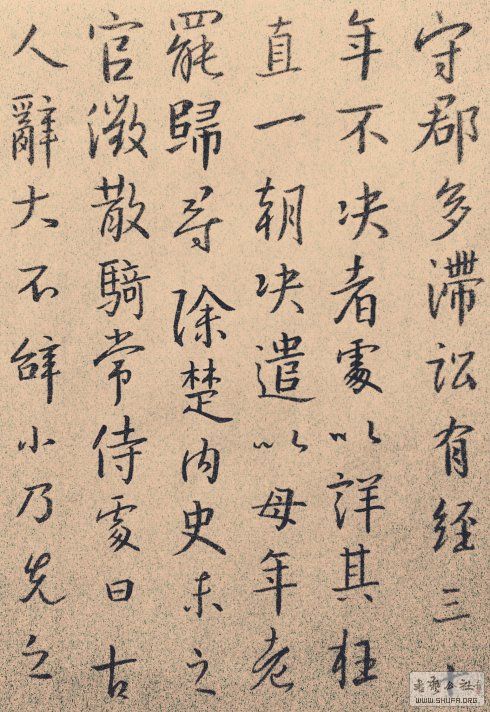 守郡多滯訟有經三
年不决者處以詳其枉
直一朝决遣以母年老
罷歸尋除楚内史未之
官徵散騎常侍處曰古
人辭大不辭小乃先之
WWW.SHUFA.ORG